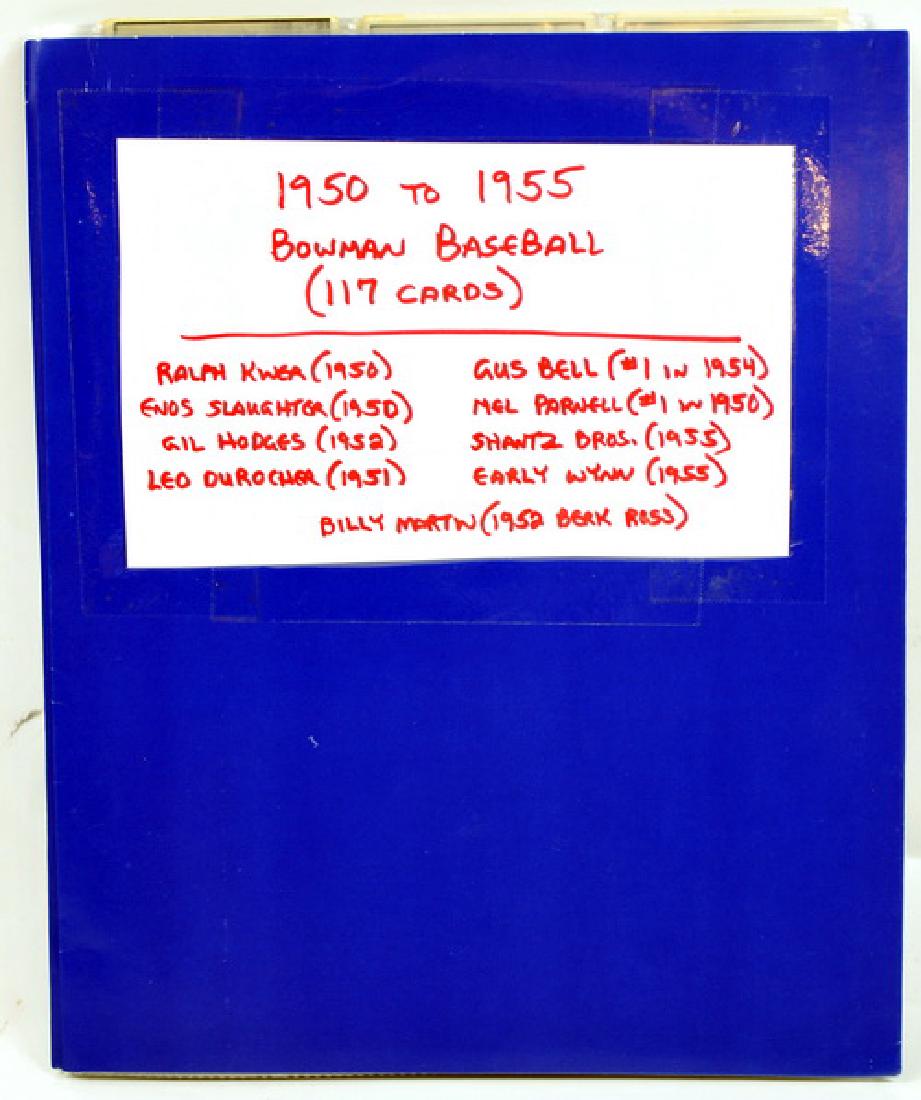 1950 TO 1955
BOWMAN BASEBALL
(117 CARDS)
RALPH KINER (1950)
ENOS SLAUGHTER (1950)
GIL HODGES (1952)
LEO DUROCHER (1951)
GUS BELL (#1 IN 1954)
MEL PARNELL (#1 IN 1950)
SHANTZ BROS. (1955)
EARLY WYNN (1955)
BILLY MARTIN (1952 BERK ROSS)